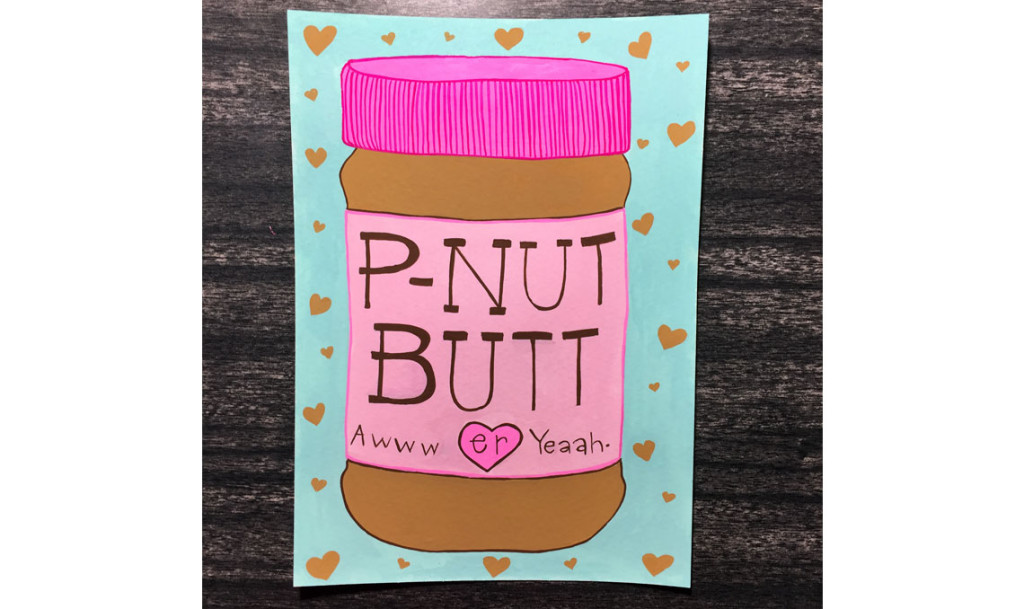 P-NUT
BUTT
Awww er Yeaah.